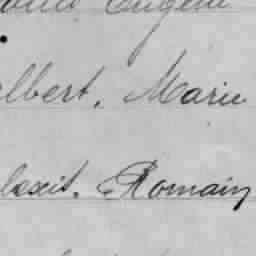 Eugène
lbert, Marie
laxit. Romain